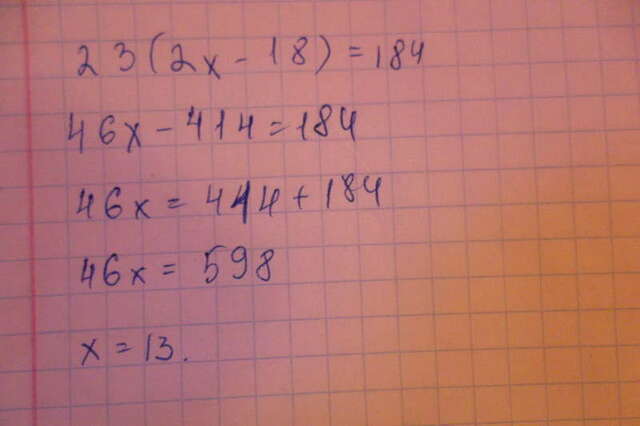 23(2x-18)=184
46x-414=184
46x=414+184
46x=598
x=13.